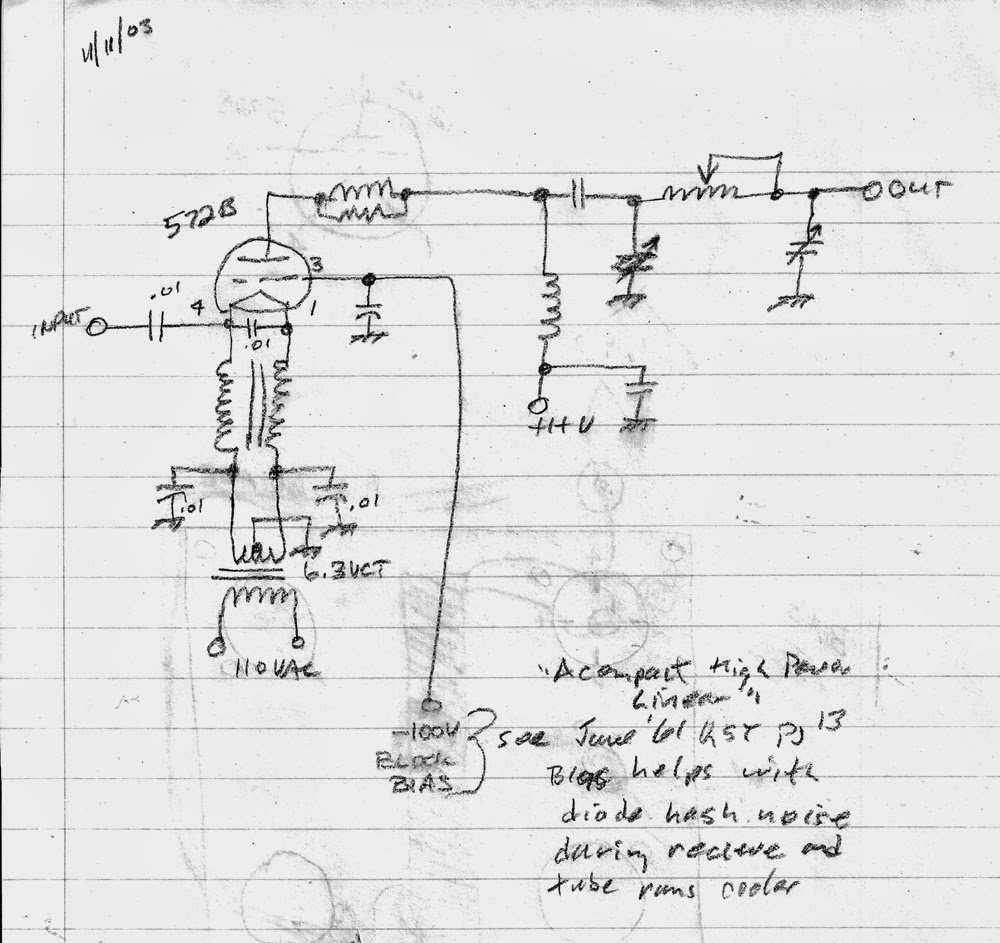 4/11/03
572B
OUT
3
.01
4
1
INPUT
.01
+HV
.01
.01
6.3VCT
110VAC
"A compact High Power
Linear",
-100V
see June '61 QST pg 13
BLOCK
BIAS
Bias helps with
diode hash noise
during recieve and
tube runs cooler